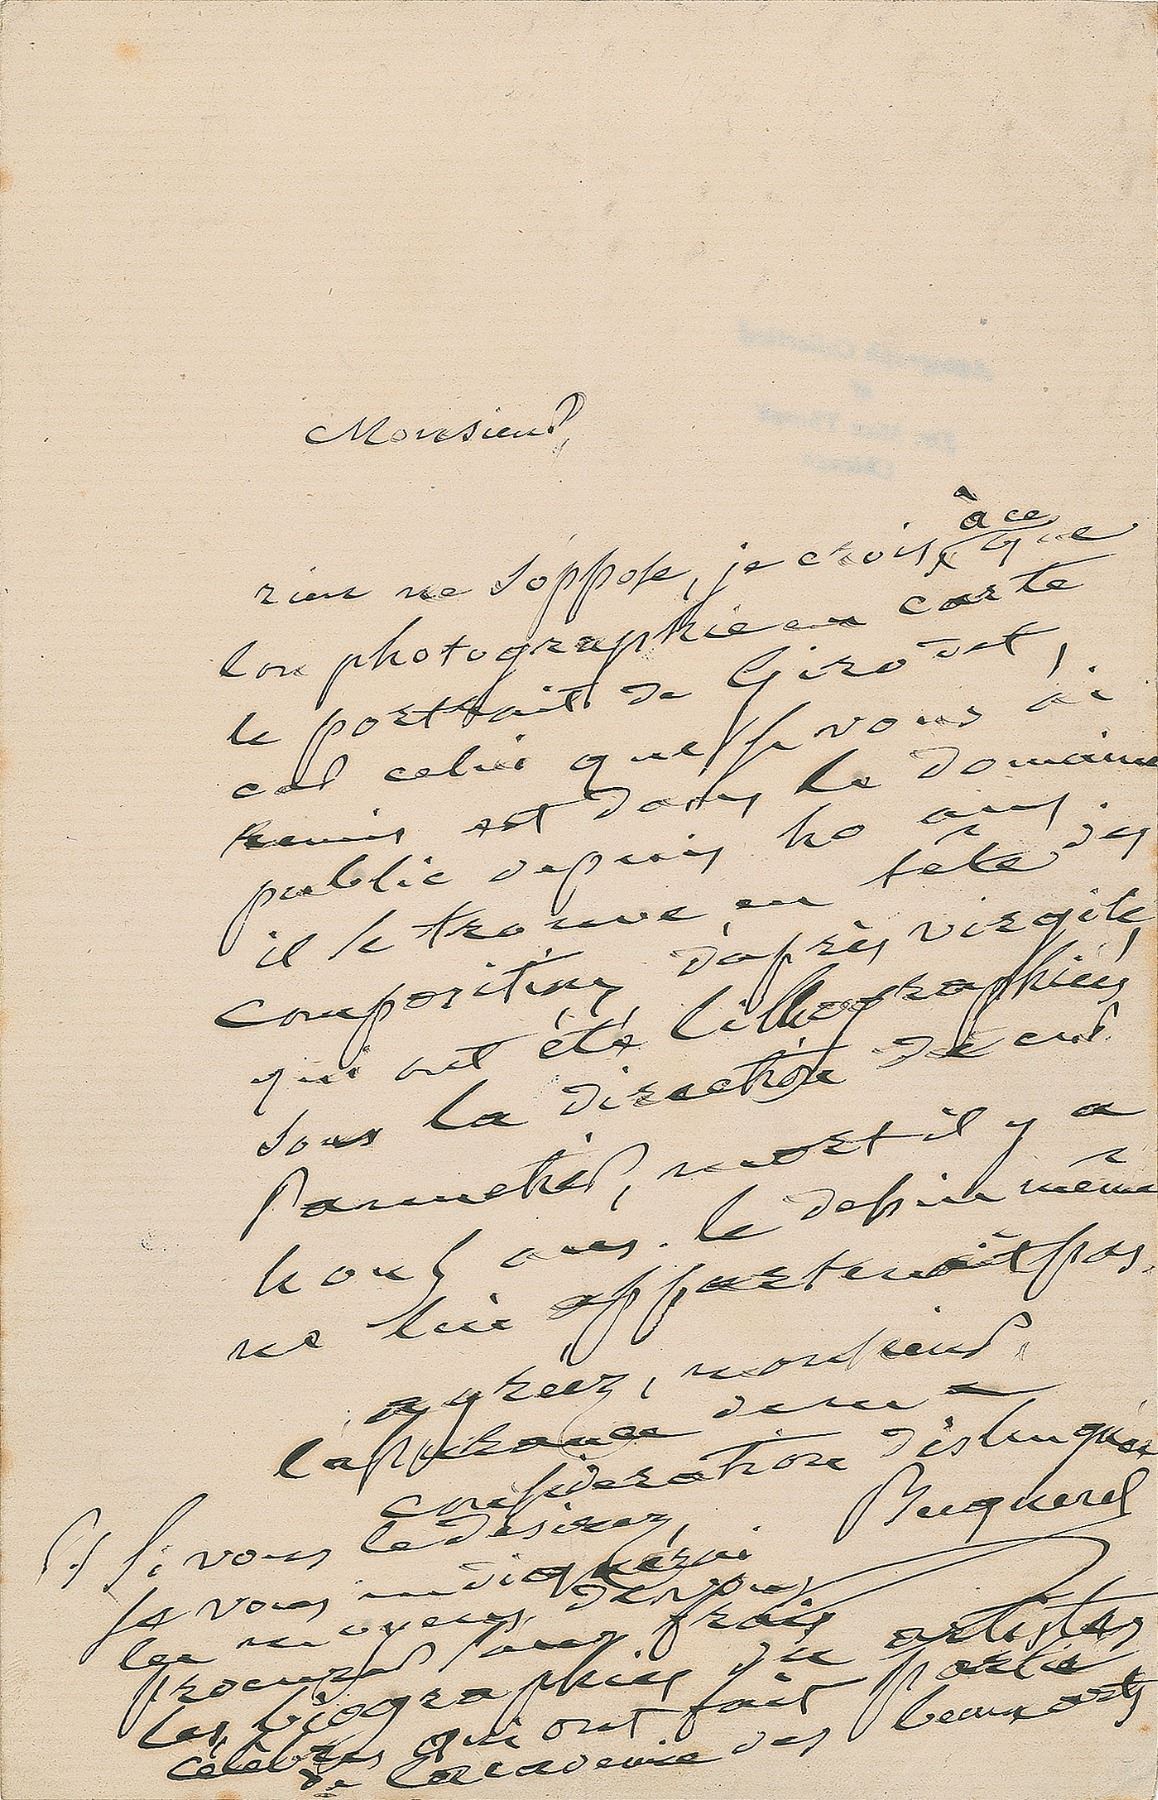 Monsieur,
à ce
rien ne s'oppose, je crois, que
l'on photographie en carte
le portrait de Girodet,
car celui que je vous ai
remis est dans le domaine
public depuis 40 ans.
il se trouve en tête des
compositions d'après virgile,
qui ont été lithographiées
sous la direction de
mort il y a
ans. le dessin même
ne lui appartenait pas.
agréez, monsieur,
l'assurance de ma
considération distinguée
Becquerel
PS Si vous le désirez,
je vous indiquerai
les moyens de vous
procurer sans frais
les biographies des artistes
célèbres qui ont fait partie
de l'academie des beaux arts